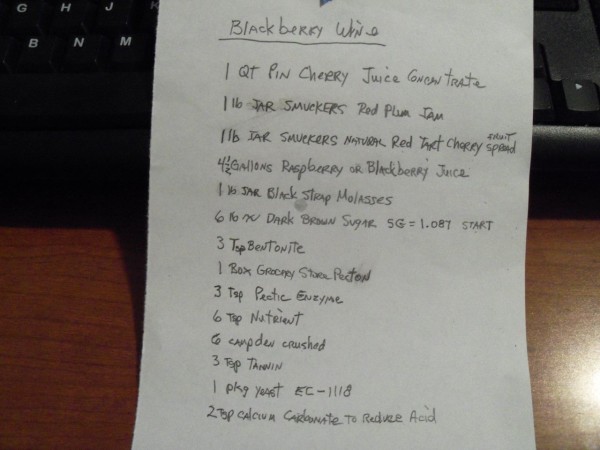 G H J K
B N M
Blackberry Wine
1 QT PIN CHERRY Juice Concentrate
1 lb JAR SMUCKERS Red Plum JAM
1 lb JAR SMUCKERS NATURAL Red TART Cherry FRUIT SPREAD
4½ GALLONS RASPBERRY OR BlackBerry Juice
1 lb JAR Black Strap Molasses
6 lb DARK BROWN SUGAR SG = 1.087 START
3 Tsp BENTONITE
1 Box GROCERY STORE PECTON
3 Tsp Pectic ENZYME
6 Tsp Nutrient
6 CAMPDEN CRUSHED
3 Tsp TANNIN
1 pkg YEAST EC-1118
2 Tsp CALCIUM CARBONATE TO REDUCE ACID